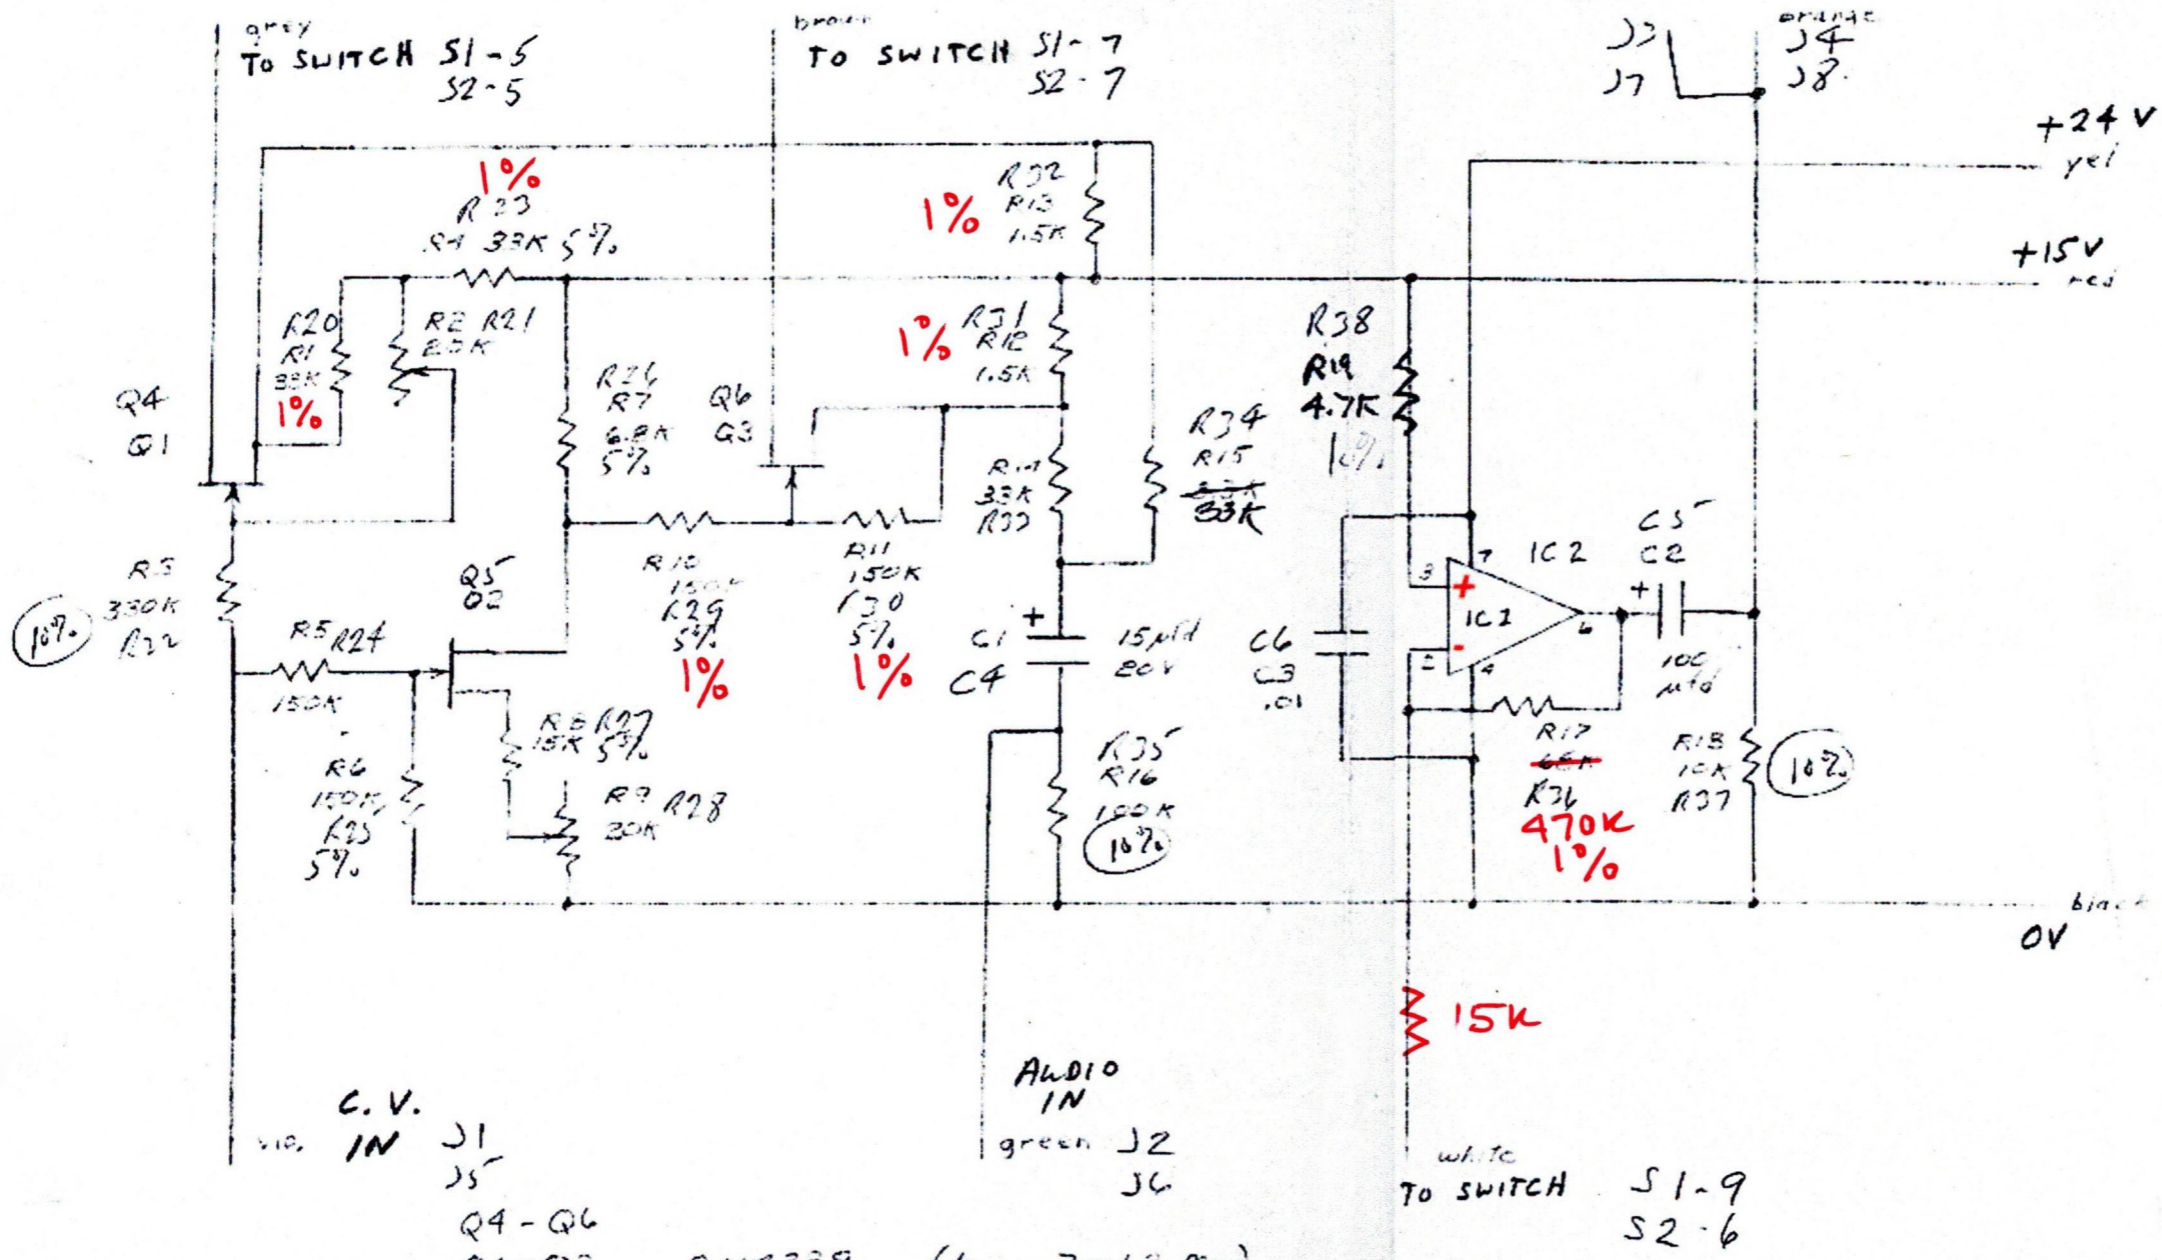 grey
TO SWITCH S1-5
S2-5
brown
TO SWITCH S1-7
S2-7
J3
J7
orange
J4
J8
+24 V
yel
+15V
red
1%
R23
R4 33K 5%
1%
R32
R13
1.5K
R20
R1
33K
1%
R2 R21
20K
1%
R31
R12
1.5K
R38
R19
4.7K
10%
Q4
Q1
R26
R7
6.8K
5%
Q6
Q3
R14
33K
R33
R34
R15
3.3K
33K
R3
330K
R22
10%
Q5
Q2
R10
150K
R29
5%
1%
R11
150K
R30
5%
1%
C1
C4
+
15 µfd
20V
C6
C3
.01
3
+
7
IC2
IC1
2
-
4
6
C5
C2
+
100
µfd
R5 R24
150K
R8 R27
15K 5%
R6
150K
R25
5%
R9 R28
20K
R35
R16
100K
10%
R17
68K
R36
470K
1%
R18
10K
R37
10%
black
0V
15K
vio.
C.V.
IN
J1
J5
AUDIO
IN
green
J2
J6
white
TO SWITCH
S1-9
S2-6
Q4-Q6